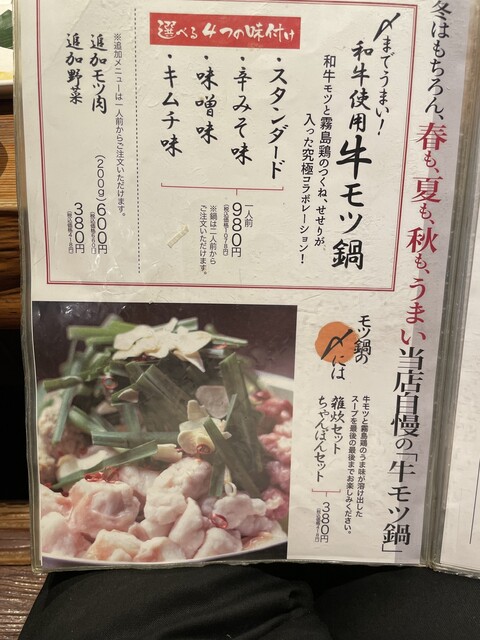 冬はもちろん、春も、夏も、秋も、うまい当店自慢の「牛モツ鍋」
〆までうまい！
和牛使用牛モツ鍋
和牛モツと霧島鶏のつくね、せせりが、
入った究極コラボレーション！
選べる4つの味付け
・スタンダード
・辛みそ味
・味噌味
・キムチ味
一人前
980円
(税込価格1078円)
※鍋は二人前から
ご注文いただけます。
※追加メニューは一人前からご注文いただけます。
追加モツ肉(200g)600円
(税込価格660円)
追加野菜 380円
(税込価格418円)
モツ鍋の
〆には
牛モツと霧島鶏のうま味が溶け出した
スープを最後の最後までお楽しみください。
雑炊セット
ちゃんぽんセット
380円
(税込価格418円)